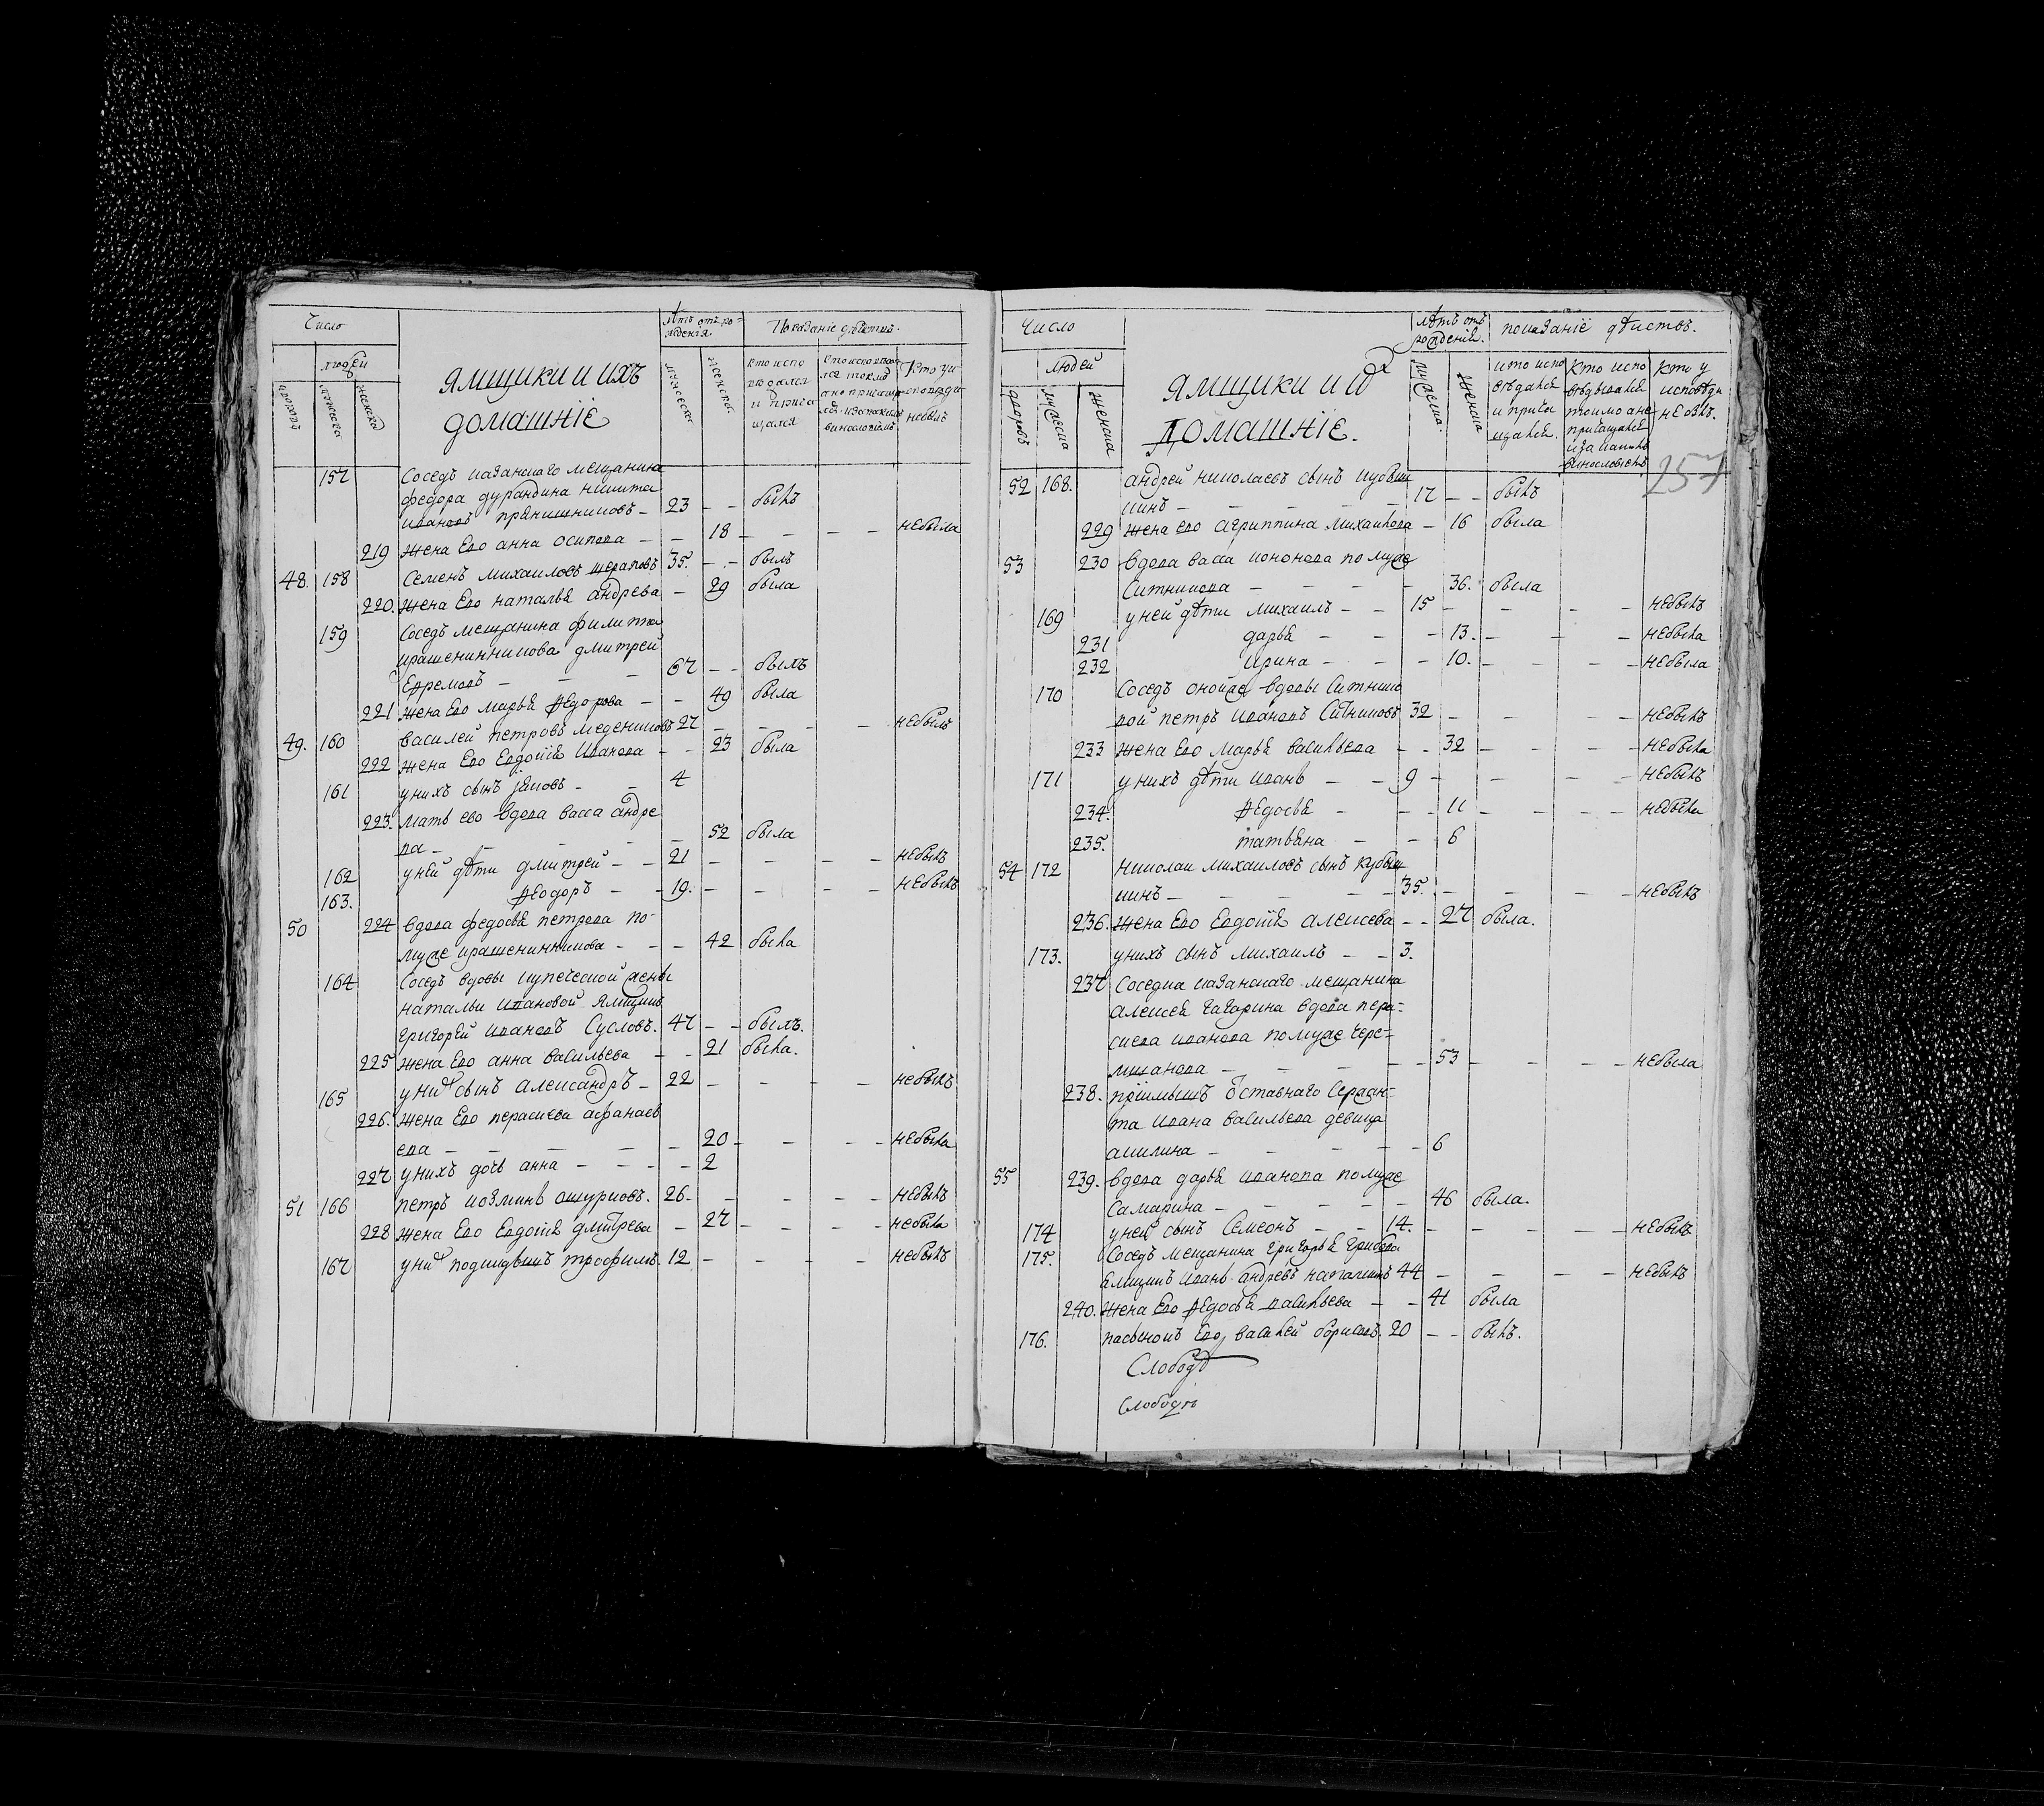 Число
Лѣтъ отъ ро-
жденія
Показаніе дѣйства.
людей
ямщики и ихъ
домашніе
дворовъ
мужеска
женска
мужеска
женска
кто испо
вѣдался
и прича
щался
Кто у и
исповѣди
небылъ
157 Соседъ казанскаго мещанина
федора дурандина никита
ивановъ прянишниковъ - 23 - - былъ
219 жена Ево анна осипова - - 18 - - - - небыла
48. 158 Семенъ михаиловъ шераповъ 35. - - былъ
220. жена Ево наталья андрева - 29 была
159 Соседъ мещанина филипа
крашенинникова дмитрей
Ефремовъ - - - 67 - - былъ
221 жена Ево марья Ѳедорова - - 49 была
49. 160 василей петровъ меденниковъ 27 - - - - небылъ
222 жена Ево Евдокія Иванова - - 23 была
161 унихъ сынъ іяковъ - - 4
223. мать ево вдова васса андре
ва - - - - - 52 была
162 уней дѣти дмитрей - - 21 - - - - небылъ
163. Ѳеодоръ - - 19. - - - - небылъ
50 224 вдова федосья петрова по
муже крашенинникова - - - 42 была
164 Соседъ вдовы купеческой жены
натальи Ивановой Ямщикъ
григорей ивановъ Сусловъ. 47 - - былъ.
225 жена Ево анна васильева - - 21 была.
165 уних сынъ Александръ - 22 - - - - небылъ
226. жена Ево парасковья афанасъ
ева - - - - - 20 - - - - небыла
227 унихъ дочь анна - - - - 2
51 166 петръ козминъ ошурковъ. 26 - - - - - небылъ
228 жена Ево Евдокія дмитрева - 27 - - - - небыла
167 уних подкидышъ трофимъ 12 - - - - небылъ
Число
лѣтъ отъ
рожденія.
показаніе дѣйствъ.
людей
ямщики и их
Домашніе.
дворовъ
мужеска
женска
мужеска.
женска
кто испо
вѣдался
и прича
щался.
Кто испо
вѣдывался
токмо ане
причащался
и за какимъ
винословіемъ
Кто у
исповѣди
небылъ.
257
52 168. андрей николаевъ сынъ кубыш
кинъ - - - - - 17 - - былъ
229 жена ево агриппина михаилова - 16 была
53 230 вдова васса кононова по муже
Ситникова - - - - 36. была
169 уней дѣти михаилъ - - 15 - - - - небылъ
231 дарья - - - 13. - - - небыла
232 Ирина - - - 10. - - - небыла
170 Соседъ онойже вдовы Ситнико
вой петръ Ивановъ Ситниковъ 32 - - - - небылъ
233 жена Ево марья васильева - - 32 - - - небыла
171 унихъ дѣти иванъ - - 9 - - - - небылъ
234. Ѳедосья - - - 11 - - - - небыла
235. татьяна - - 6
54 172 николаи михаиловъ сынъ Кубыш
кинъ - - - - 35. - - - небылъ
236. жена Ево Евдокія алексеева - - 27 была.
173. унихъ сынъ михаилъ - - 3.
237 Соседка казанскаго мещанина
алексея гагарина вдова пара-
скева иванова помуже чере-
мшанова - - - - 53 - - - небыла
238. пріимышъ Ѿставнаго Сержан-
та ивана васильева девица
акилина - - - - 6
55 239. вдова дарья иванова помуже
Самарина - - - - - 46 была.
174 уней сынъ Семеонъ - - 14. - - - - небылъ
175. Соседъ мещанина григорья грибова
ямщикъ иванъ андревъ 44 - - - - небылъ
240. жена Ево Ѳедосья васильева - - 41 была
176. пасынокъ Ево василей борисовъ. 20 - - былъ.
Слобод
Слободы